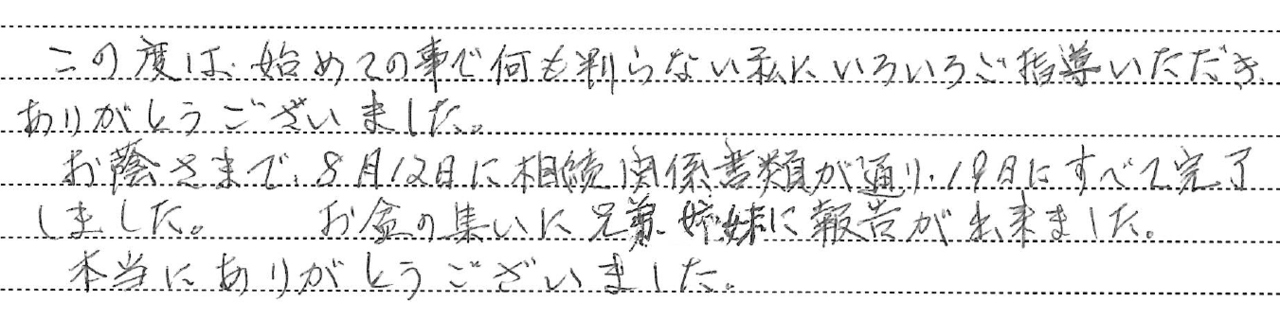 この度は、始めての事で何も判らない私にいろいろご指導いただき、
ありがとうございました。
お蔭さまで、8月12日に相続関係書類が通り、19日にすべて完了
しました。　お盆の集いに兄弟、姉妹に報告が出来ました。
本当にありがとうございました。